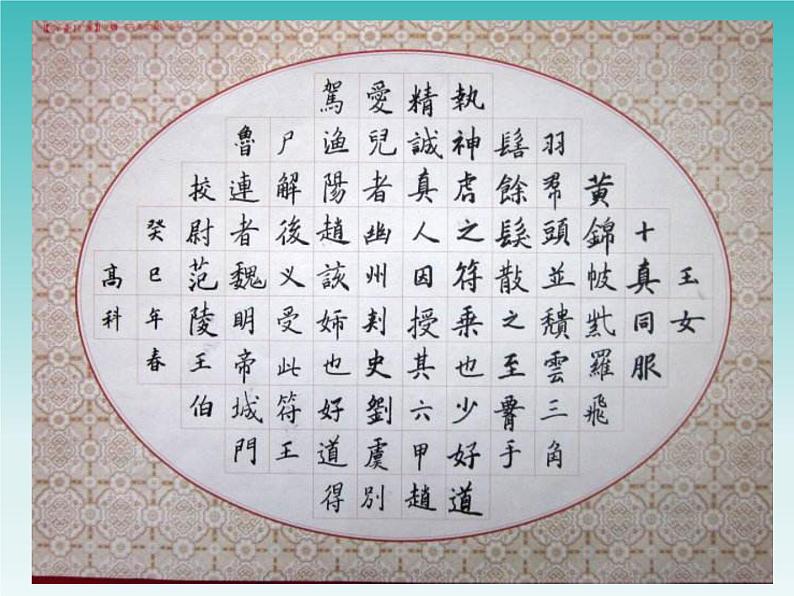 玉女
十真同服
黄錦帔紫羅飛
羽帬頭並穨雲三角
髻餘髮散之至手
執神虎之符乘也少好道
精誠真人因授其六甲趙
愛兒者幽州刾史劉虞別
駕渔陽趙該姊也好道得
尸解後又受此符王
魯連者魏明帝城門
校尉范陵王伯
癸巳年春
高科